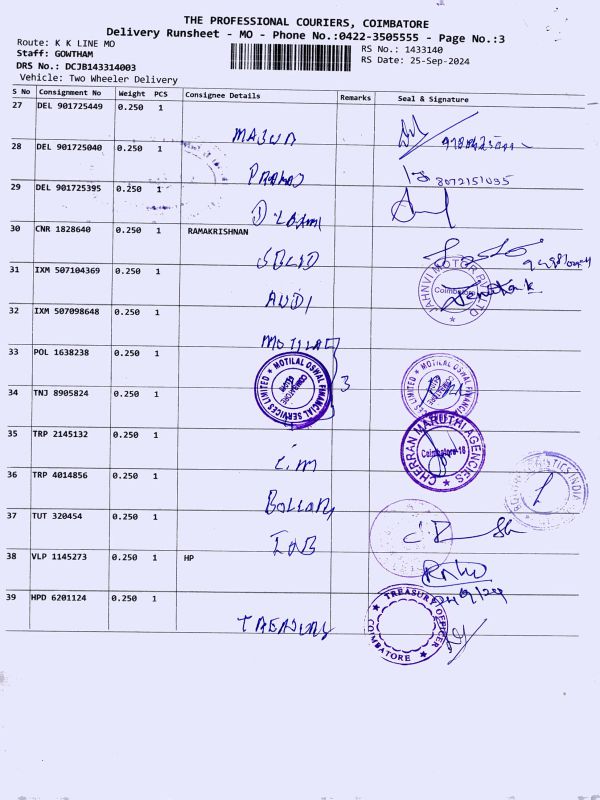 THE PROFESSIONAL COURIERS, COIMBATORE
Delivery Runsheet - MO - Phone No.:0422-3505555 - Page No.:3
Route: K K LINE MO
RS No.: 1433140
Staff: GOWTHAM
RS Date: 25-Sep-2024
DRS No.: DCJB143314003
Vehicle: Two Wheeler Delivery
S No Consignment No Weight PCS Consignee Details Remarks Seal & Signature
27 DEL 901725449 0.250 1
28 DEL 901725040 0.250 1
29 DEL 901725395 0.250 1
D. Laxmi
30 CNR 1828640 0.250 1 RAMAKRISHNAN
SOLID
31 IXM 507104369 0.250 1
AUDI
JAHNVI MOTOR PVT LTD
Coimbatore
32 IXM 507098648 0.250 1
MOTILAL
33 POL 1638238 0.250 1
MOTILAL OSWAL FINANCIAL SERVICES LIMITED
COIMBATORE
3
MOTILAL OSWAL FINANCIAL SERVICES LIMITED
34 TNJ 8905824 0.250 1
35 TRP 2145132 0.250 1
CHERRAN MARUTHI AGENCIES
Coimbatore-18
36 TRP 4014856 0.250 1
LOGISTICS INDIA
37 TUT 320454 0.250 1
IOB
38 VLP 1145273 0.250 1 HP
39 HPD 6201124 0.250 1
TREASURY
TREASURY OFFICER
COIMBATORE